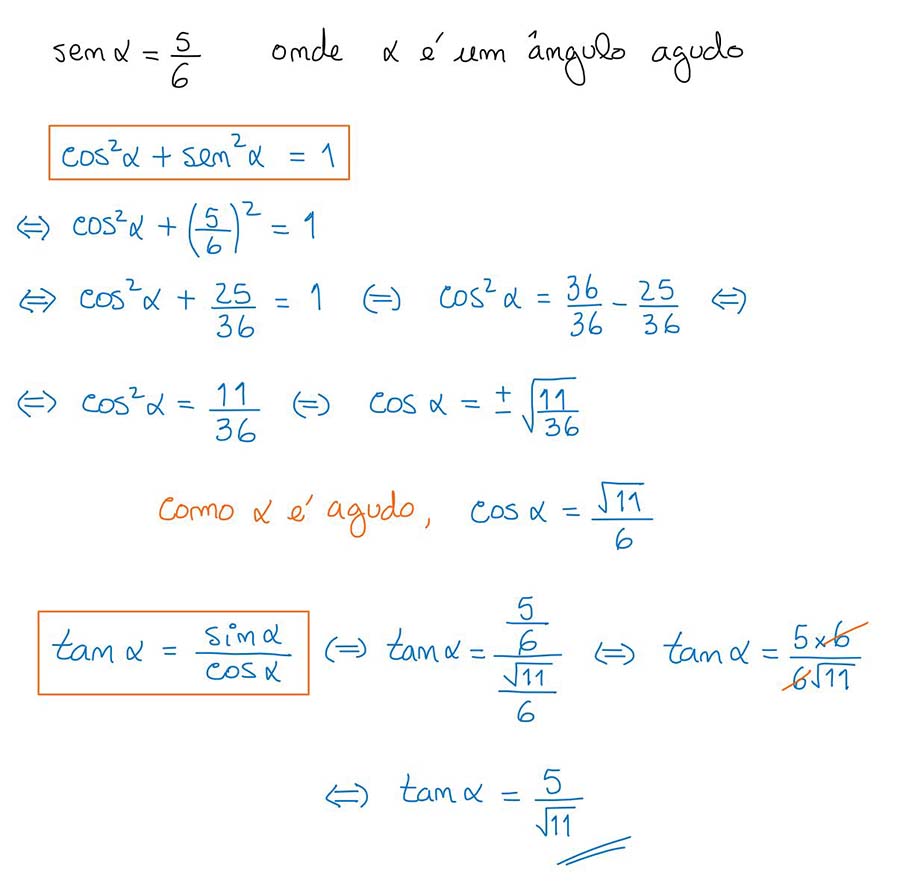 sen α = 5/6 onde α é um ângulo agudo
cos²α + sen²α = 1
⇔ cos²α + (5/6)² = 1
⇔ cos²α + 25/36 = 1 ⇔ cos²α = 36/36 − 25/36 ⇔
⇔ cos²α = 11/36 ⇔ cos α = ± √(11/36)
Como α é agudo, cos α = √11/6
tan α = sin α/cos α ⇔ tan α = (5/6)/(√11/6) ⇔ tan α = 5×6/6√11
⇔ tan α = 5/√11